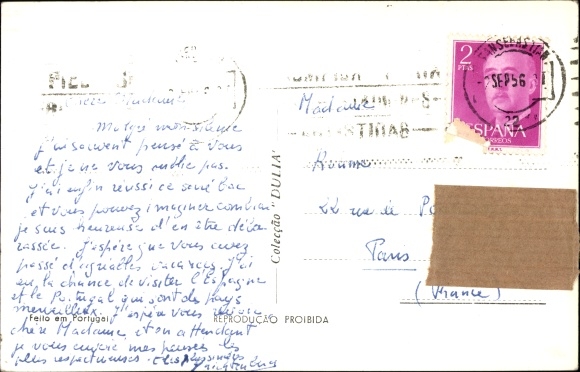 Chère Madame
Malgré mon silence
j'ai souvent pensé à vous
et je ne vous oublie pas.
J'ai enfin réussi ce bac
et vous pouvez imaginer combien
je suis heureuse d'en être déba
rassée. J'espère que vous avez
passé d'agréables vacances, j'ai
eu la chance de visiter l'Espagne
et le Portugal qui sont des pays
merveilleux. J'espère vous revoir
chère Madame et en attendant
je vous envoie mes pensées les
plus respectueuses.
Feito em Portugal
Colecção "DULIA"
REPRODUÇÃO PROIBIDA
2
PTAS
SAN SEBASTIAN
SEP 56
22
ESPAÑA
CORREOS
Madame
22 rue de
Paris
(France)